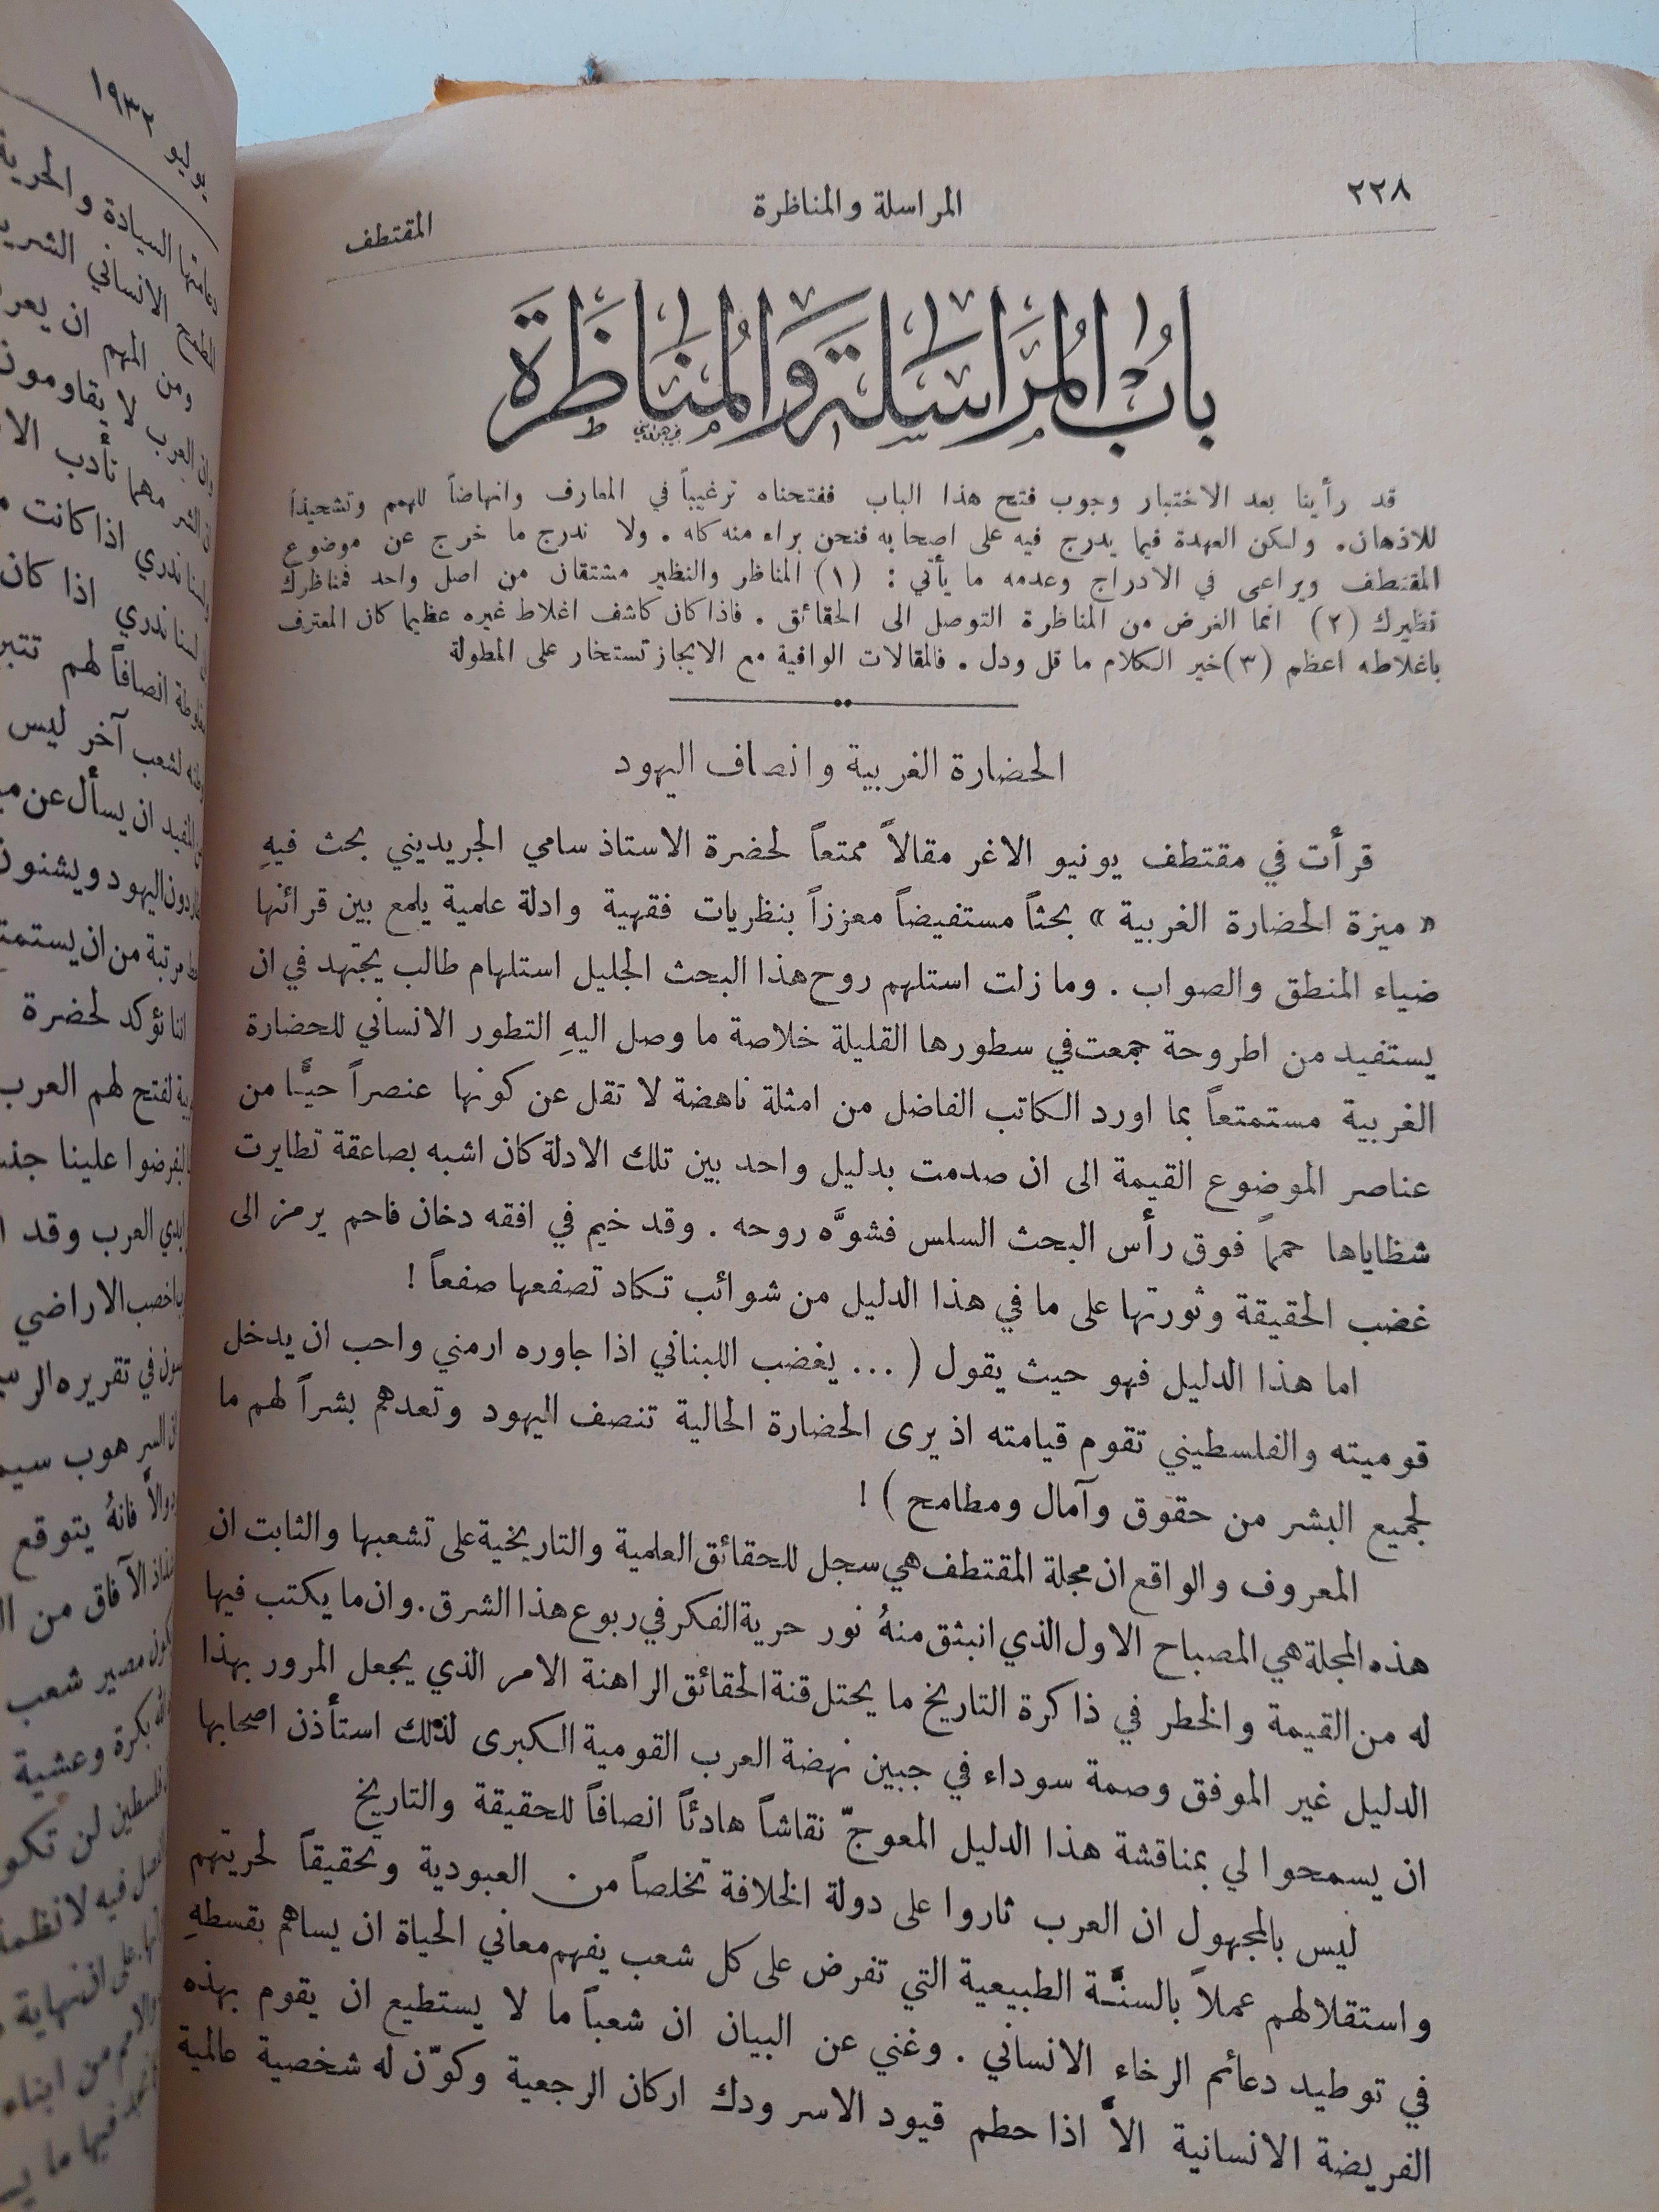 ٢٢٨
المراسلة والمناظرة
المقتطف
بابُ المُرَاسَلة وَالمُنَاظَرة
قد رأينا بعد الاختبار وجوب فتح هذا الباب ففتحناه ترغيباً في المعارف وانهاضاً للهمم وتشحيذاً
للاذهان. ولكن العهدة فيما يدرج فيه على اصحابه فنحن براء منه كله. ولا ندرج ما خرج عن موضوع
المقتطف ويراعى في الادراج وعدمه ما يأتي : (١) المناظر والنظير مشتقان من اصل واحد فمناظرك
نظيرك (٢) انما الغرض من المناظرة التوصل الى الحقائق . فاذا كان كاشف اغلاط غيره عظيما كان المعترف
باغلاطه اعظم (٣) خير الكلام ما قل ودل . فالمقالات الوافية مع الايجاز تستخار على المطولة
الحضارة الغربية وانصاف اليهود
قرأت في مقتطف يونيو الاغر مقالاً ممتعاً لحضرة الاستاذ سامي الجريديني بحث فيهِ
« ميزة الحضارة الغربية » بحثاً مستفيضاً معززاً بنظريات فقهية وادلة علمية يلمع بين قرائنها
ضياء المنطق والصواب . وما زلت استلهم روح هذا البحث الجليل استلهام طالب يجتهد في ان
يستفيد من اطروحة جمعت في سطورها القليلة خلاصة ما وصل اليهِ التطور الانساني للحضارة
الغربية مستمتعاً بما اورد الكاتب الفاضل من امثلة ناهضة لا تقل عن كونها عنصراً حيًّا من
عناصر الموضوع القيمة الى ان صدمت بدليل واحد بين تلك الادلة كان اشبه بصاعقة تطايرت
شظاياها حمماً فوق رأس البحث السلس فشوَّه روحه . وقد خيم في افقه دخان فاحم يرمز الى
غضب الحقيقة وثورتها على ما في هذا الدليل من شوائب تكاد تصفعها صفعاً !
اما هذا الدليل فهو حيث يقول ( ... يغضب اللبناني اذا جاوره ارمني واحب ان يدخل
قوميته والفلسطيني تقوم قيامته اذ يرى الحضارة الحالية تنصف اليهود وتعدهم بشراً لهم ما
لجميع البشر من حقوق وآمال ومطامح ) !
المعروف والواقع ان مجلة المقتطف هي سجل للحقائق العلمية والتاريخية على تشعبها والثابت ان
هذه المجلة هي المصباح الاول الذي انبثق منهُ نور حرية الفكر في ربوع هذا الشرق . وان ما يكتب فيها
له من القيمة والخطر في ذاكرة التاريخ ما يحتل قنة الحقائق الراهنة الامر الذي يجعل المرور بهذا
الدليل غير الموفق وصمة سوداء في جبين نهضة العرب القومية الكبرى لذلك استأذن اصحابها
ان يسمحوا لي بمناقشة هذا الدليل المعوجّ نقاشاً هادئاً انصافاً للحقيقة والتاريخ
ليس بالمجهول ان العرب ثاروا على دولة الخلافة تخلصاً من العبودية وتحقيقاً لحريتهم
واستقلالهم عملاً بالسنَّة الطبيعية التي تفرض على كل شعب يفهم معاني الحياة ان يساهم بقسطهِ
في توطيد دعائم الرخاء الانساني . وغني عن البيان ان شعباً ما لا يستطيع ان يقوم بهذه
الفريضة الانسانية الاَّ اذا حطم قيود الاسر ودك اركان الرجعية وكوّن له شخصية عالمية
يوليو ١٩٣٢
السيادة والحرية
الانساني
ومن المهم ان
العرب لا يقاومون
مهما تأدب
ندري اذا كانت
لسنا ندري اذا كان
انصافاً لهم
لشعب آخر ليس
المفيد ان يسأل عن
اليهود ويشنون
مرتبة من ان
اننا نؤكد لحضرة
لفتح لهم العرب
ليفرضوا علينا
ايدي العرب وقد
الاراضي
في تقريره
السر هوب
والاَّ فانهُ يتوقع
الآفاق من
مصير شعب
بكرة وعشية
فلسطين لن
فيه
على ان نهاية
من ابناء
فيها ما